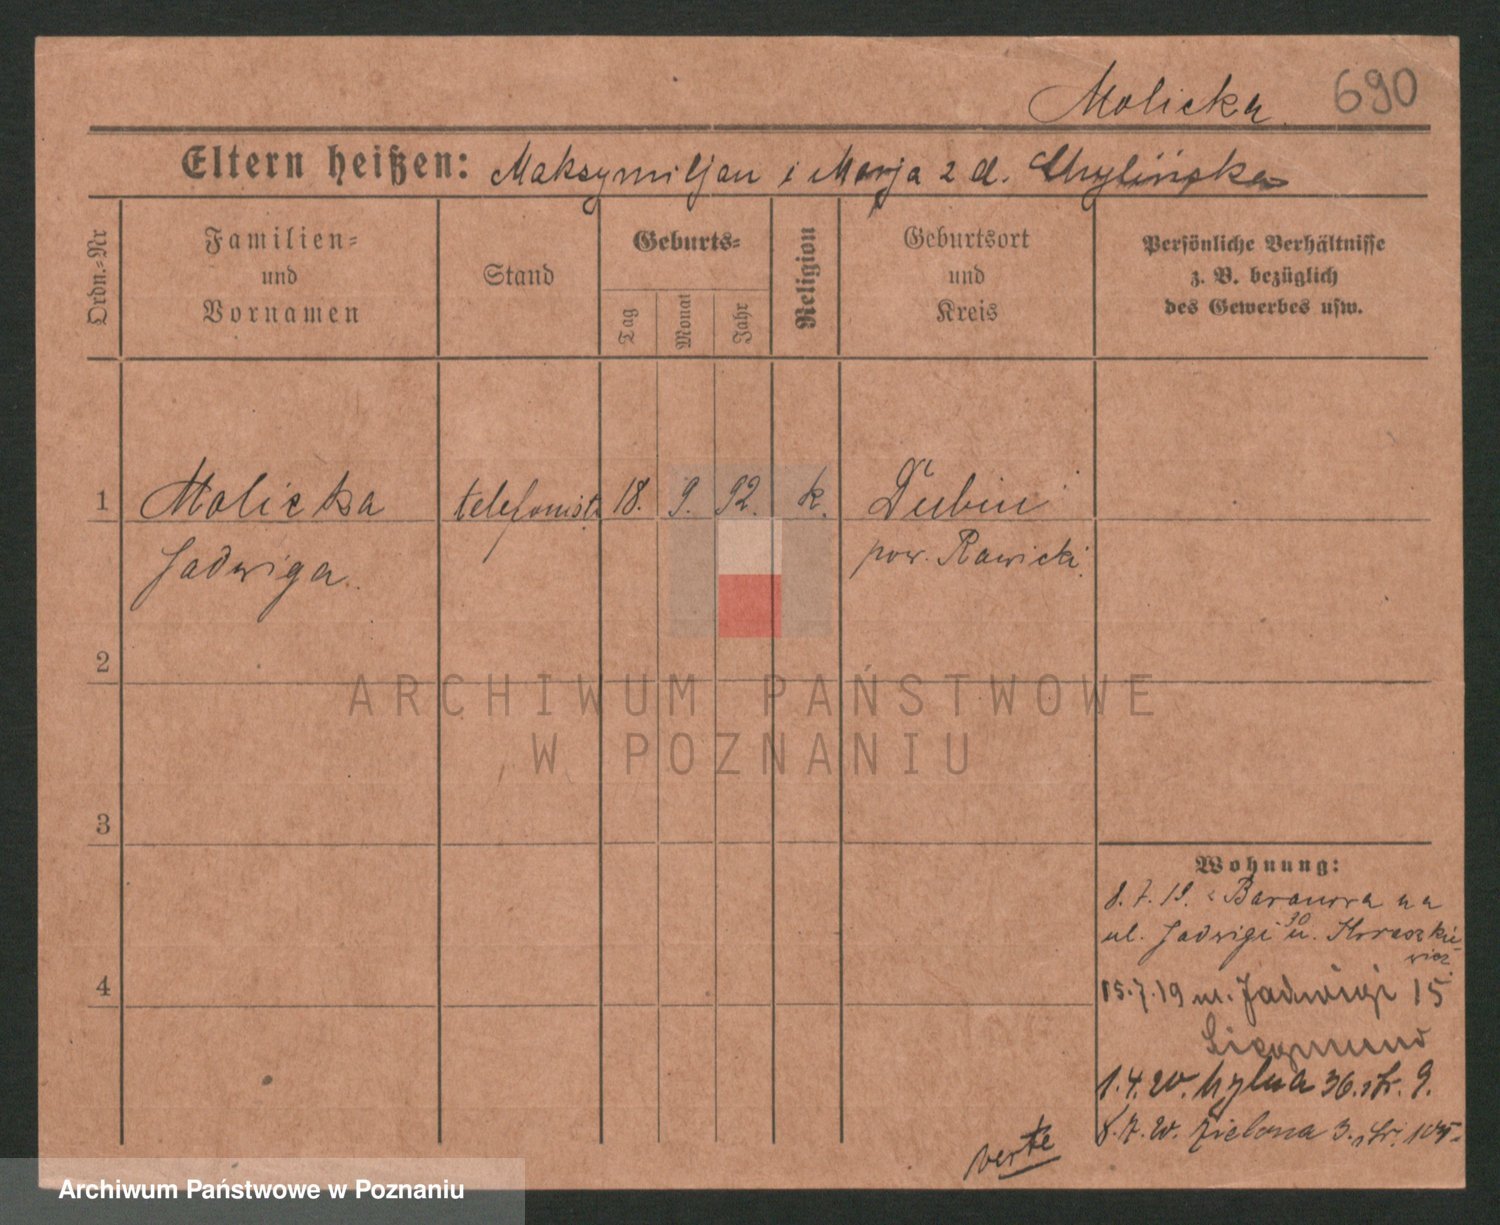 Molicka
690
Eltern heißen: Maksymiljan i Marja z d. Chylińska
Ordn.-Nr
Familien-
und
Vornamen
Stand
Geburts-
Tag
Monat
Jahr
Religion
Geburtsort
und
Kreis
Persönliche Verhältnisse
z. B. bezüglich
des Gewerbes usw.
1 Molicka telefonist. 18. 9. 92. k. Dubin
Jadwiga. pow. Rawicki.
2
ARCHIWUM PAŃSTWOWE
W POZNANIU
3
4
Wohnung:
8.7.19. z Baranowa na
ul. Jadwigi 30 u.
15.7.19 ul. Jadwigi 15
Siegmund
1.4.20. 36. str. 9.
8.7.20. Zielona 3. str. 105.
verte
Archiwum Państwowe w Poznaniu